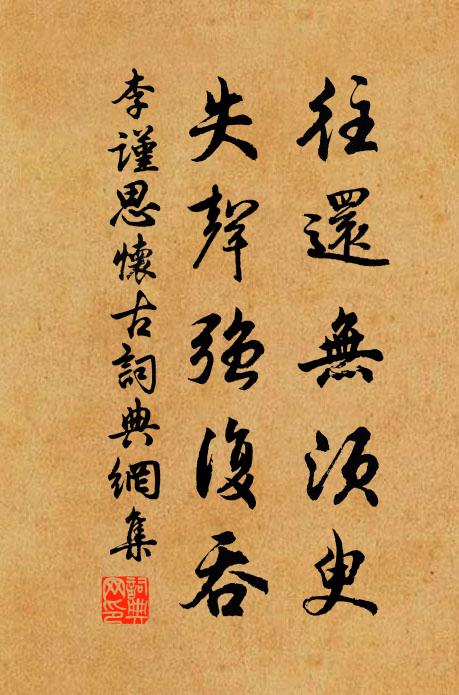 往還無須臾
失聲強復吞
李謹思懷古詞典網集
詞典
网印